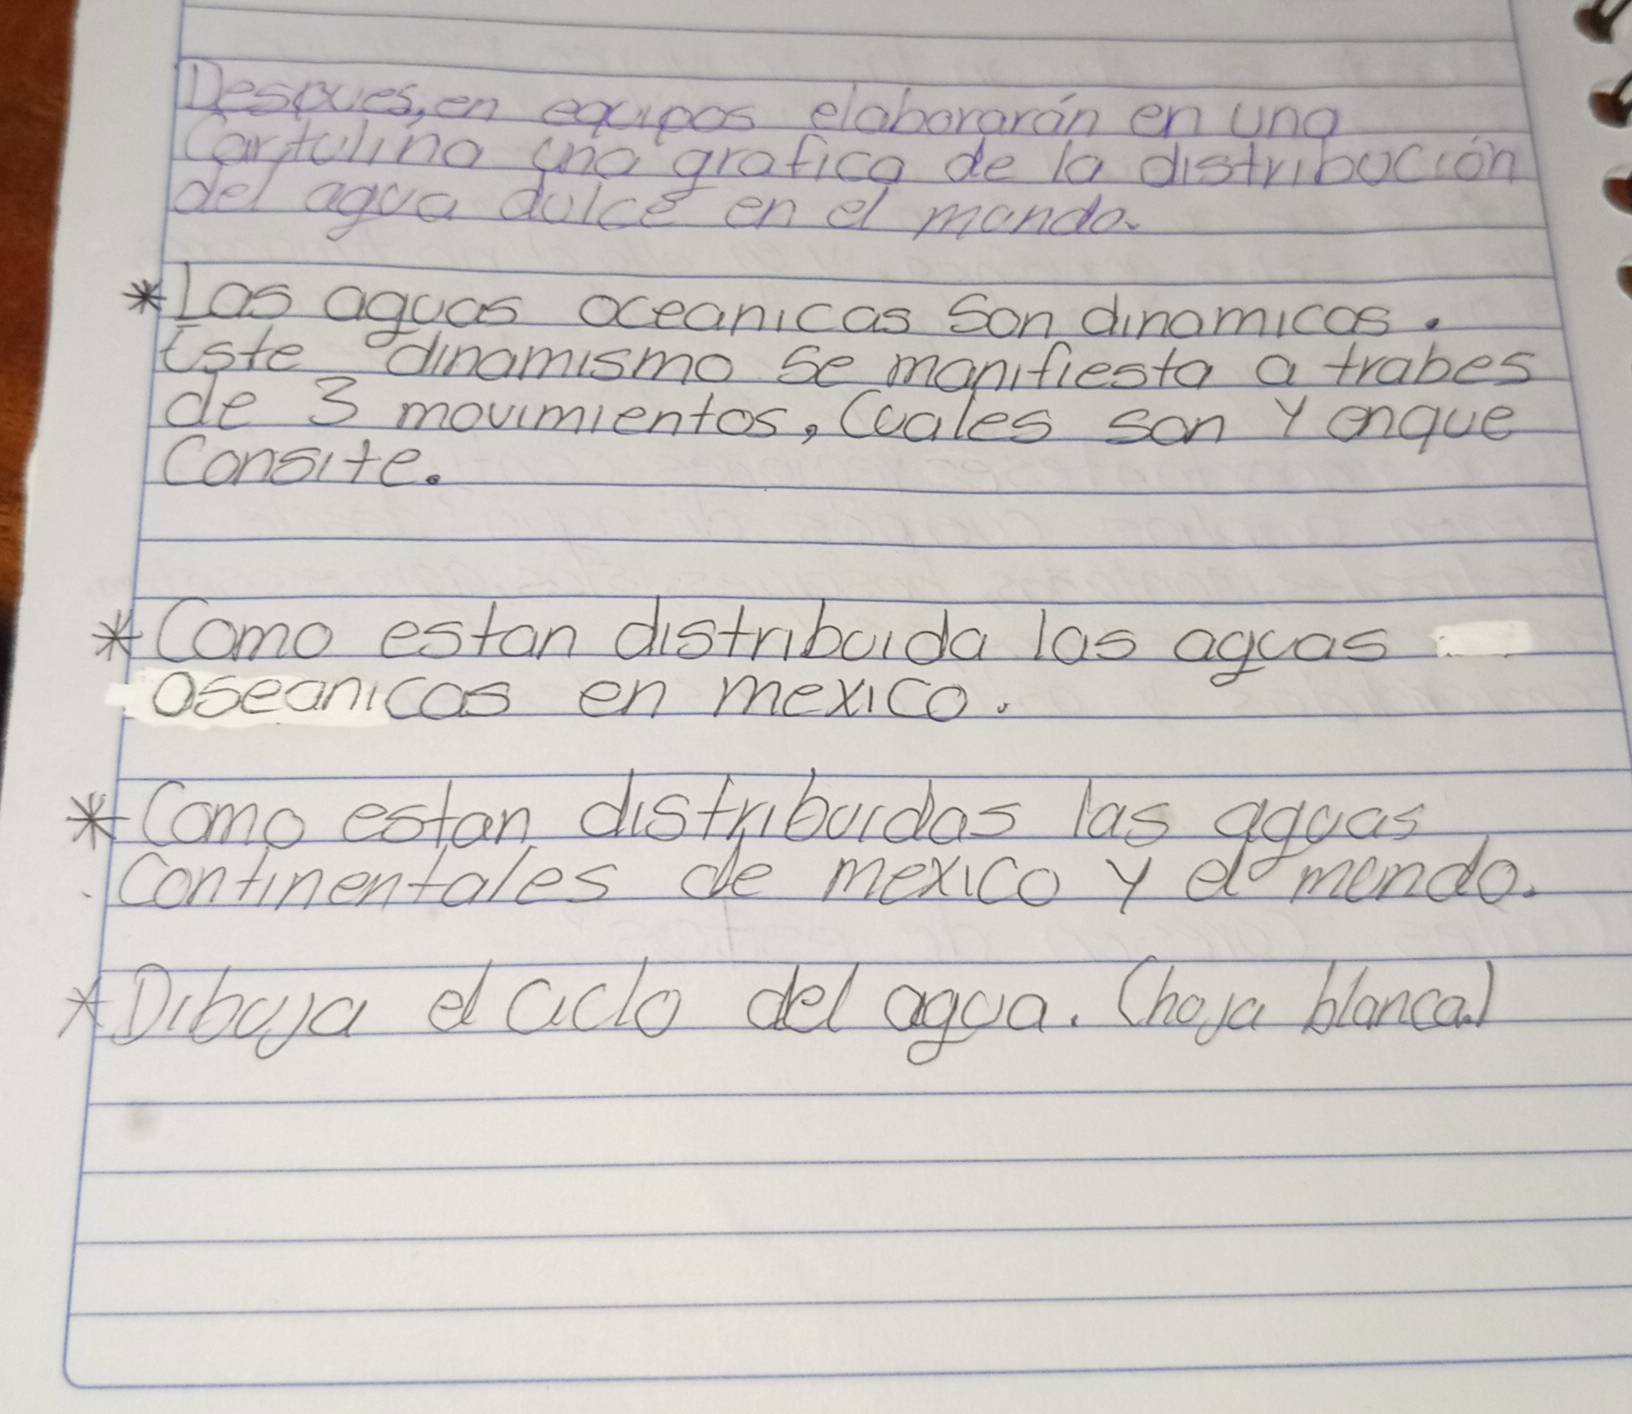 Despues, en equipos elaborarán en una
Cartulina una grafica de la distribución
del agua dulce en el mundo.
*Las aguas oceanicas Son dinamicas.
Este dinamismo se manifiesta a trabes
de 3 movimientos, Cuales son Y enque
Consite.
*Como estan distribuida las aguas
oseanicas en mexico.
*Como estan distribuidas las aguas
Continentales de mexico y el mundo.
*Dibuja el ciclo del agua. (hoja blanca.)